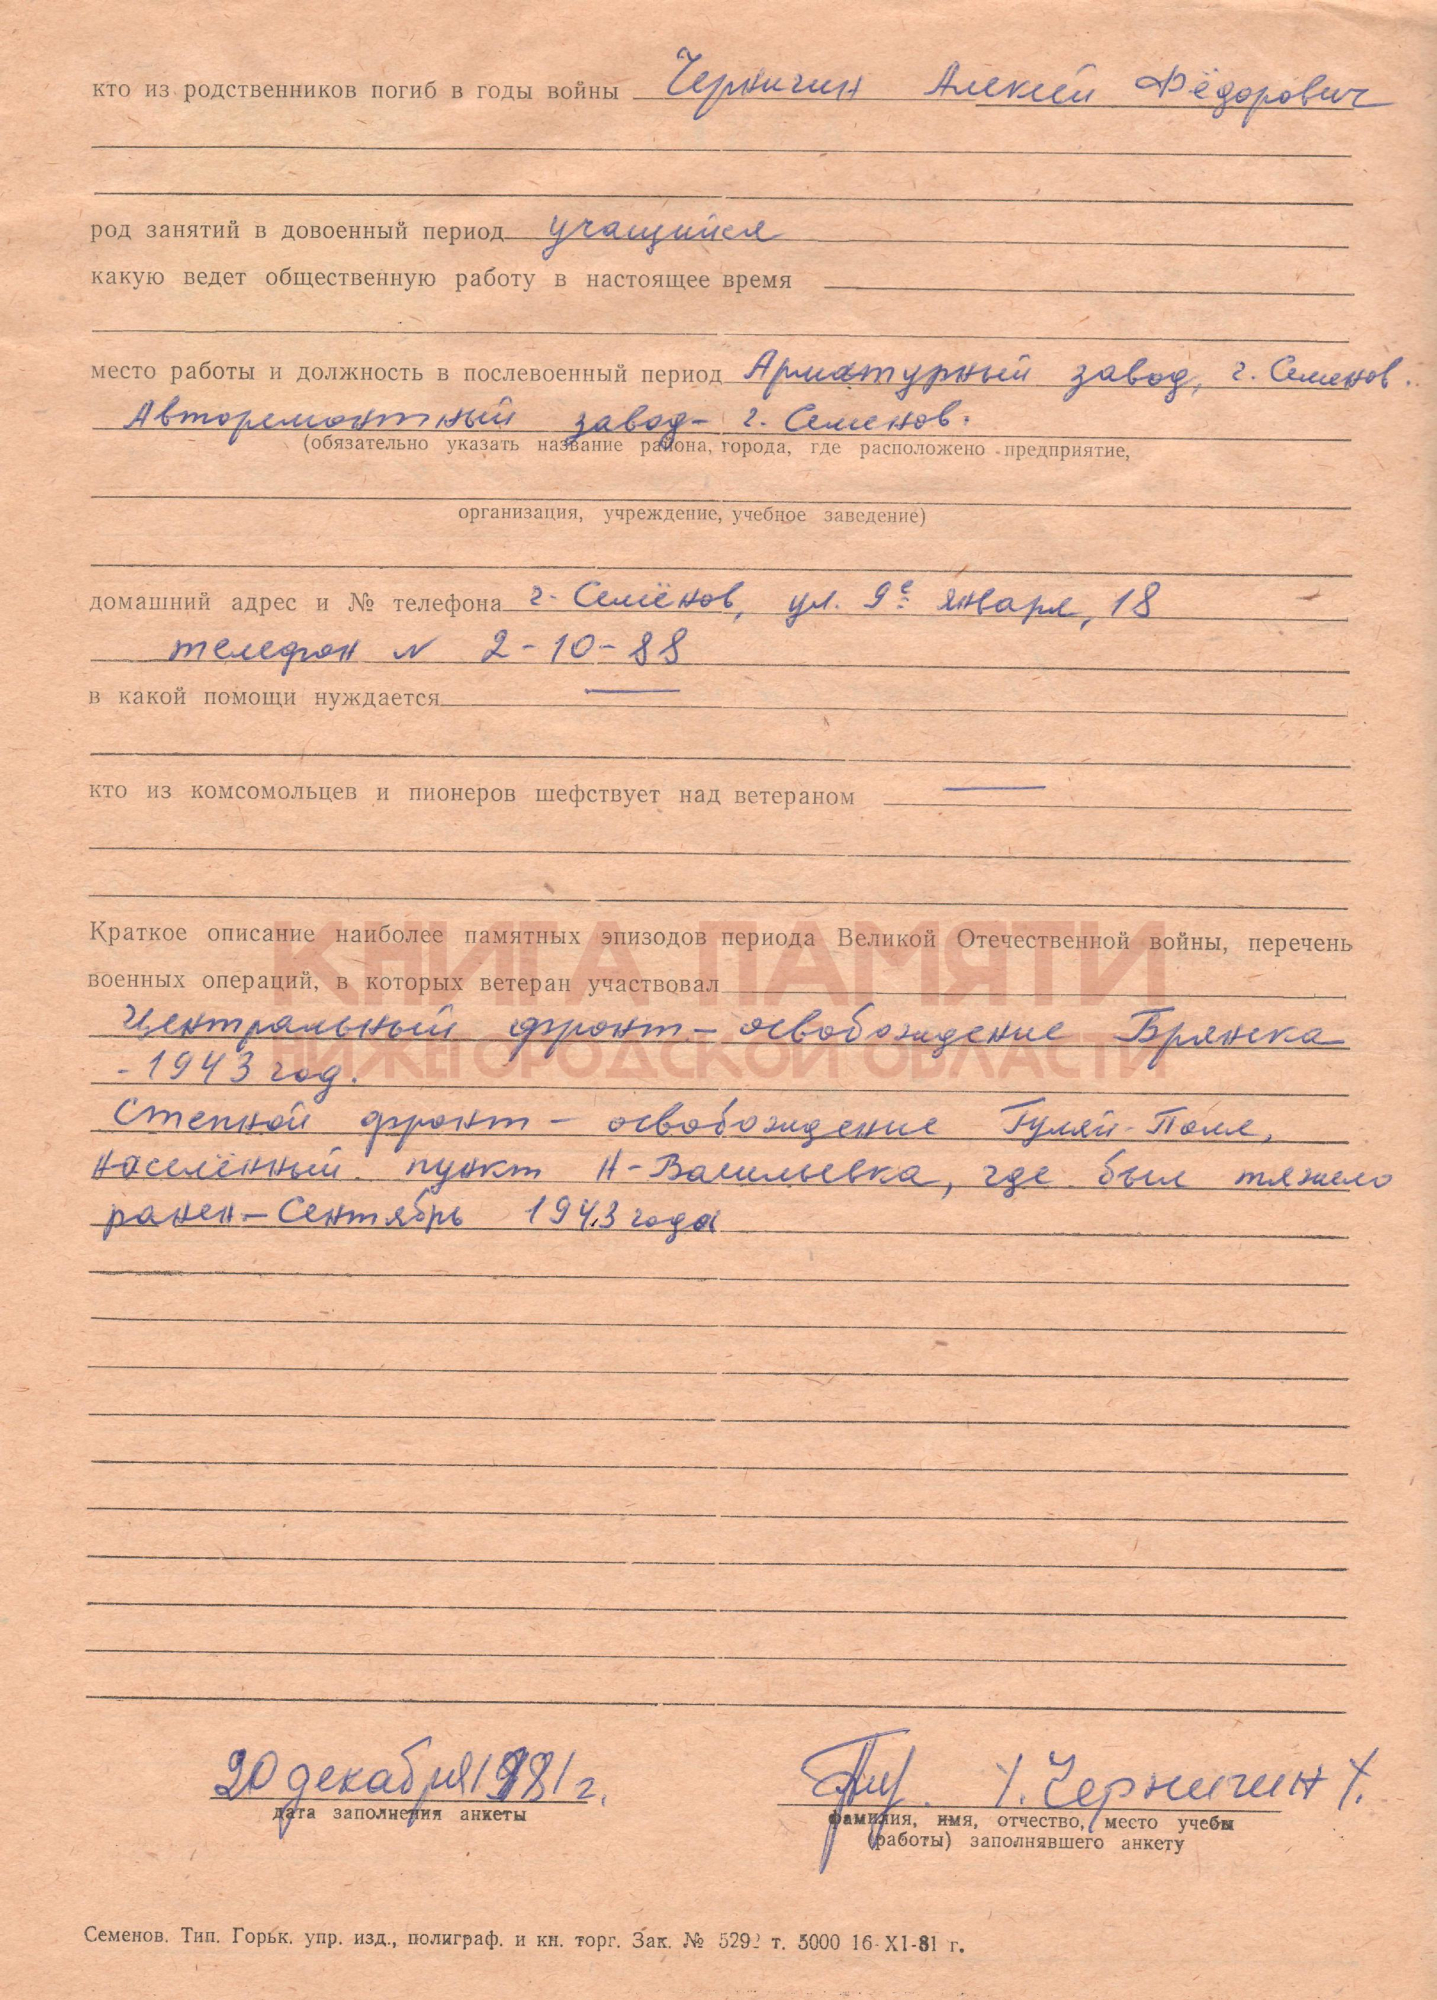 кто из родственников погиб в годы войны Черничин Алексей Фёдорович
род занятий в довоенный период учащийся
какую ведет общественную работу в настоящее время
место работы и должность в послевоенный период Арматурный завод, г. Семенов.
Авторемонтный завод - г. Семенов.
(обязательно указать название района, города, где расположено предприятие,
организация, учреждение, учебное заведение)
домашний адрес и № телефона г. Семёнов, ул. 9е января, 18
телефон N 2-10-88
в какой помощи нуждается —
кто из комсомольцев и пионеров шефствует над ветераном —
КНИГА ПАМЯТИ
Краткое описание наиболее памятных эпизодов периода Великой Отечественной войны, перечень
военных операций, в которых ветеран участвовал
Центральный фронт - освобождение Брянска
НИЖЕГОРОДСКОЙ ОБЛАСТИ
- 1943 год.
Степной фронт - освобождение Гуляй-Поле,
населённый пункт Н-Васильевка, где был тяжело
ранен - Сентябрь 1943 года
20 декабря 1981 г. Черничин
дата заполнения анкеты
фамилия, имя, отчество, место учебы
(работы) заполнявшего анкету
Семенов. Тип. Горьк. упр. изд., полиграф. и кн. торг. Зак. № 5292 т. 5000 16-XI-81 г.